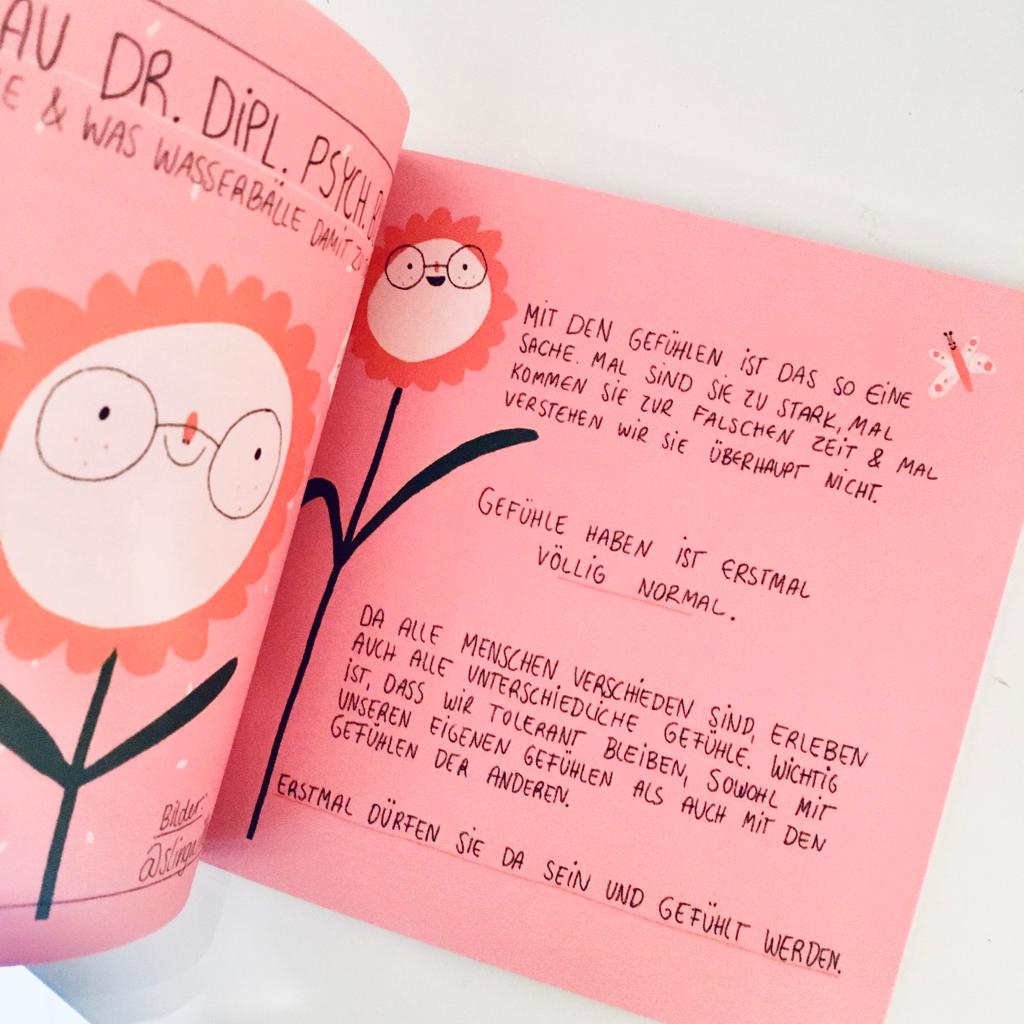 DR. DIPL. PSYCH.
& WAS WASSERBÄLLE DAMIT
Bilder:
MIT DEN GEFÜHLEN IST DAS SO EINE
SACHE. MAL SIND SIE ZU STARK, MAL
KOMMEN SIE ZUR FALSCHEN ZEIT & MAL
VERSTEHEN WIR SIE ÜBERHAUPT NICHT.
GEFÜHLE HABEN IST ERSTMAL
VÖLLIG NORMAL.
DA ALLE MENSCHEN VERSCHIEDEN SIND, ERLEBEN
AUCH ALLE UNTERSCHIEDLICHE GEFÜHLE. WICHTIG
IST, DASS WIR TOLERANT BLEIBEN, SOWOHL MIT
UNSEREN EIGENEN GEFÜHLEN ALS AUCH MIT DEN
GEFÜHLEN DER ANDEREN.
ERSTMAL DÜRFEN SIE DA SEIN UND GEFÜHLT WERDEN.